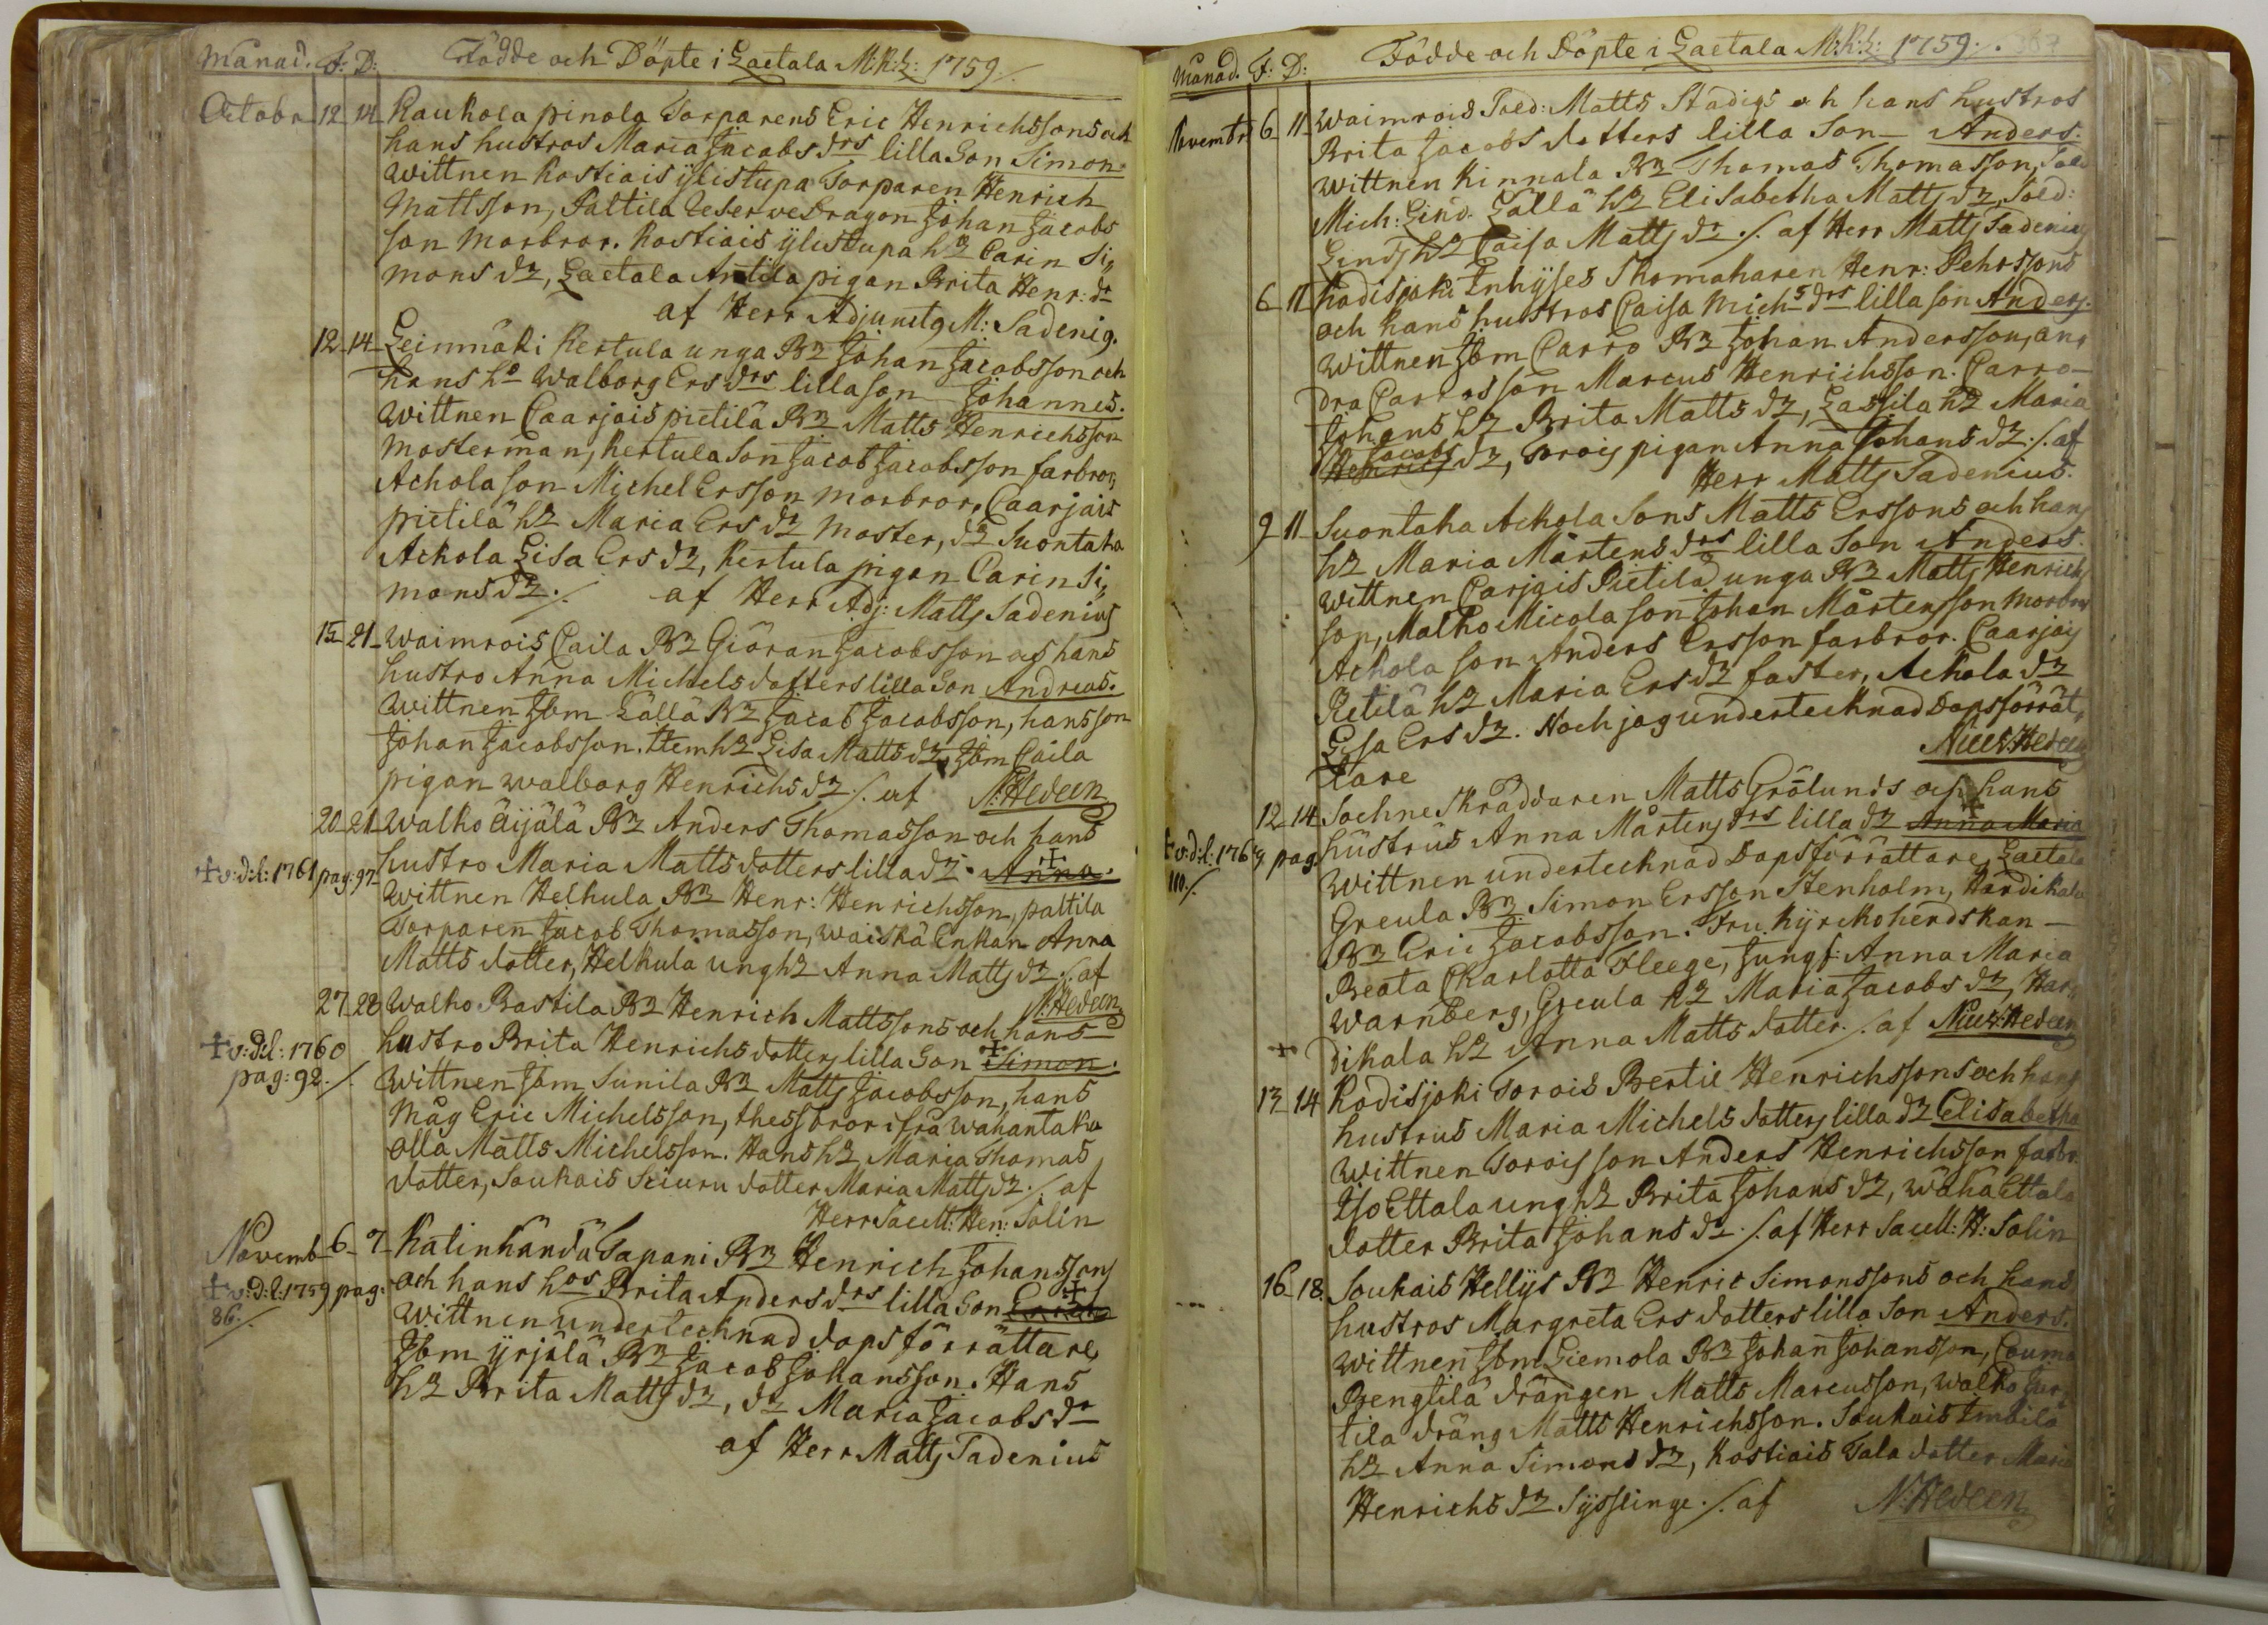 Månad. F: D: Födde och Döpte i Laetala M:K:L: 1759./.
Octobr 12 14 Kaukola pinola Torparens Eric Henrichssons och
hans hustros Maria Jacobs drs lilla Son Simon.
Wittnen Kostiais ylistupa Torparen Henrich
Mattsson, Paltila Reserve Dragon Johan Jacobs
son Morbror. Kostiais ylistupa hz Carin Si,,
mons dz, Laetala Antila pigan Brita Henr: dr
af Herr Adjunct9 M: Sadeni9.
12 14 Leinmäki Kertula unga Bz Johan Jacobsson och
hans ho Walborg Ers drs lilla son Johannes.
Wittnen Caarjais pietilä Bz Matts Henrichsson
Mosterman, Kertula Son Jacob Jacobsson farbror,
Achola son Michel Ersson Morbror, Caarjais
pietilä hz Maria Ers dz Moster, dz Suontaka
Ackola Lisa Ers dz, Kertula pigan Carin Si,,
mons dz ./. af Herr Adj: Matts Sadenius
15 21 Waimrois Caila Bz Giöran Jacobsson och hans
hustro Anna Michelsdotters lilla Son Andreas.
Wittnen Jbm Lällä Bz Jacob Jacobsson, hans son
Johan Jacobsson. Item hz Lisa Matts dz, Jbm Caila
pigan Walborg Henrichs dz ./. af N: Hedeen
20 21 Walko äijälä Bz Anders Thomasson och hans
hustro Maria Mattsdotters lilla dz. Anna.
+ v:d:l: 1761 pag: 97.
Wittnen Helkula Bz Henr: Henrichsson, paltila
Torparen Jacob Thomasson, Waiskä Enkan Anna
Matts dotter, Helkula ung hz Anna Matts dz ./. af
N: Hedeen
27 28 Walko Bastila Bz Henrich Mattssons och hans
hustro Brita Henrichsdotters lilla Son Simon.
+ v:d:l: 1760
pag: 92./.
Wittnen Jbm Sunila Bz Matts Jacobsson, hans
Måg Eric Michelsson, thess bror ifrå Wahantaka
Olla Matts Michelsson. Hans hz Maria Thomas
dotter, Soukais Seiuru dotter Maria Matts dz ./. af
Herr Sacell: Hen: Salin
Novemb 6 7 Katinhändä Tapani Bz Henrich Johanssons
och hans hos Brita Anders drs lilla Son
+ v:d:l: 1759 pag:
86./.
Wittnen undertecknad dopsförrättare,
Jbm yrjälä Bz Jacob Johansson. Hans
hz Brita Matts dz, dz Maria Jacobs dr
af Herr Matts Sadenius
Månad. F: D: Födde och Döpte i Laetala M:K:L: 1759./.
Novembr 6 11 Waimrois Sold: Matts Stadigs och hans hustros
Brita Jacobs dotters lilla Son Anders.
Wittnen Kinnala Bz Thomas Thomasson, Sold
Mich: Lind. Lällä hz Elisabetha Matts dz, Sold:
Linds hz Caisa Matts dz ./. af Herr Matts Sadenius
6 11 Kodisjoki Inhyses Skomakaren Henr: Pehrssons
och hans hustros Caisa Michs drs lilla son Anders.
Wittnen Jbm Carro Bz Johan Andersson, an,
dra Carros son Marcus Henrichsson. Carro
Johans hz Brita Matts dz, Lassila hz Maria
Jacobs
Henrichs dz, Torois pigan Anna Johans dz ./. af
Herr Matts Sadenius.
9 11 Suontaka Ackola Sons Matts Erssons och hans
hz Maria Mårtens drs lilla Son Anders.
Wittnen Carjais Pietilä unga Bz Matts Henrichs
son, Malko Micola son Johan Mårtensson Morbror
Achola son Anders Ersson farbror. Caarjais
Pietilä hz Maria Ers dz faster, Ackola dz
Lisa Ers dz. Noch jag undertecknad Dopsförrät,
tare Nils Hedeen
12 14 Sochne Skräddaren Matts Grölunds och hans
hustrus Anna Mårtens drs lilla dz Anna Maria
+ v:d:l: 1764 pag.
110./.
Wittnen undertecknad Dopsförrättare, Laetala
Greula Bz Simon Ersson Stenholm, Hardikala
Bz Eric Jacobsson. Fru Kyrckoherdskan
Beata Charlotta Fleege, Jungf: Anna Maria
Warnberg, Greula hz Maria Jacobs dz, Har,
dikala hz Anna Matts dotter ./. af Nils Hedeen
13 14 Kodisjoki Torois Bertil Henrichssons och hans
hustrus Maria Michels dotters lilla dz Elisabetha
Wittnen Torois son Anders Henrichsson farbr.
Iso Ettala ung hz Brita Johans dz, Wähä Ettala
dotter Brita Johans dz ./. af Herr Sacell: H: Salin
16 18 Soukais Hellys Bz Henric Simonssons och hans
hustros Margreta Ers dotters lilla Son Anders.
Wittnen Jbm Liemola Bz Johan Johansson, Cauma
Bengtilä drängen Matts Marcusson, Walko Jur,
tila dräng Matts Henrichsson. Soukais Imbila
hz Anna Simons dz, Kostiais Tala dotter Maria
Henrichs dz Sysslinge ./. af N: Hedeen